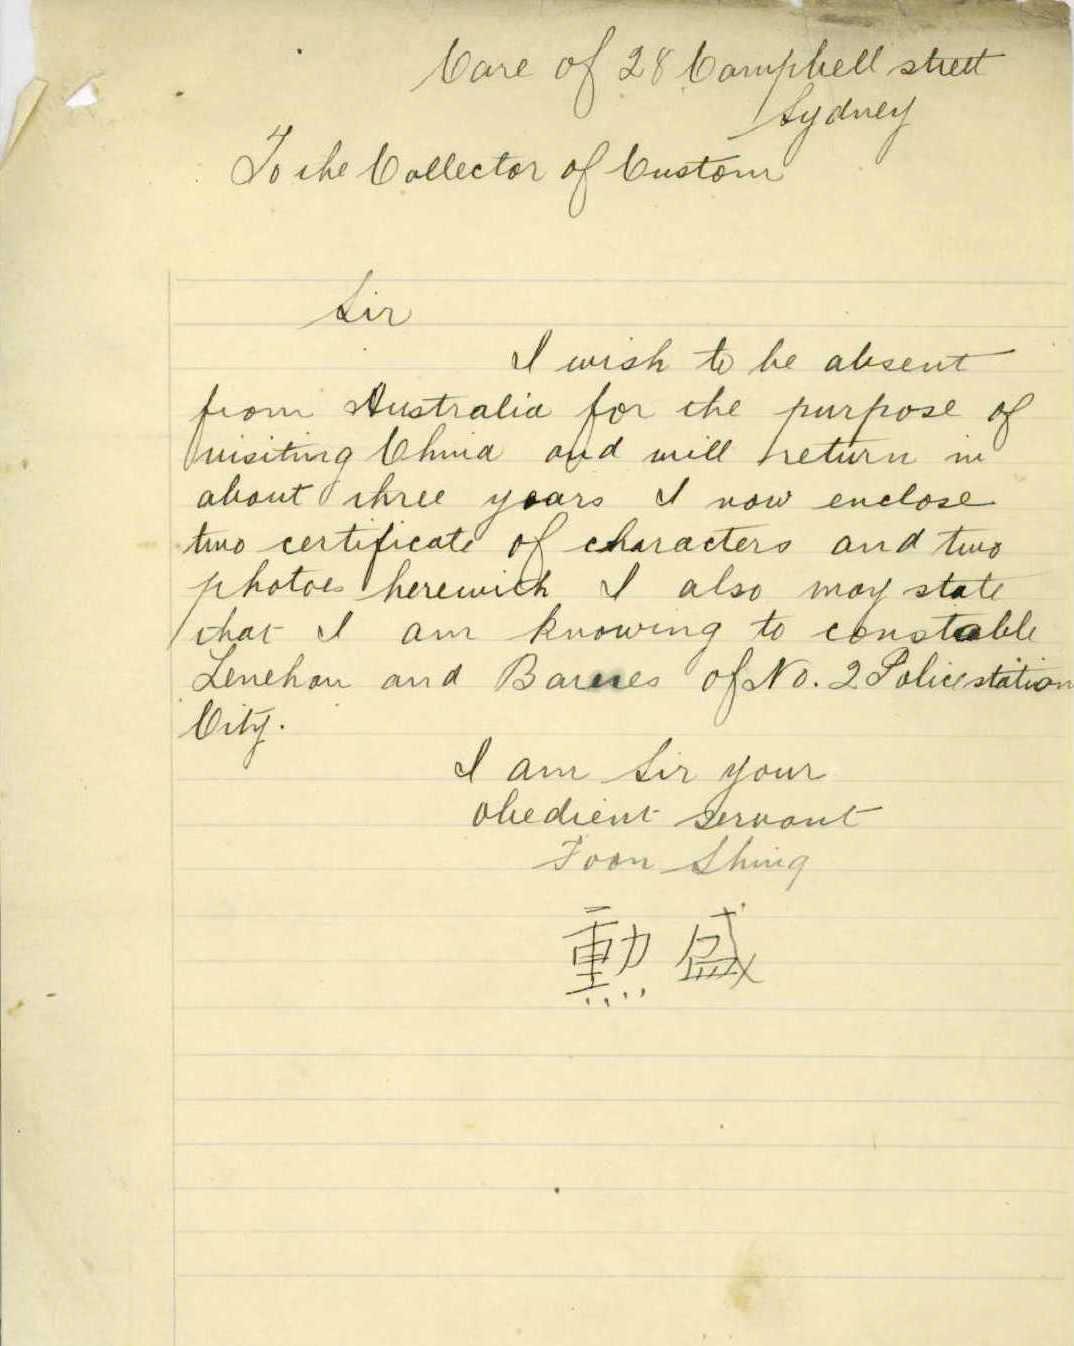 Care of 28 Campbell street
Sydney
To the Collector of Custom
Sir
I wish to be absent
from Australia for the purpose of
visiting China and will return in
about three years I now enclose
two certificate of characters and two
photoes herewith I also may state
that I am knowing to constable
Lenehan and Barnes of No. 2 Police station
City.
I am Sir your
obedient servant
Foon Shing
勲盛